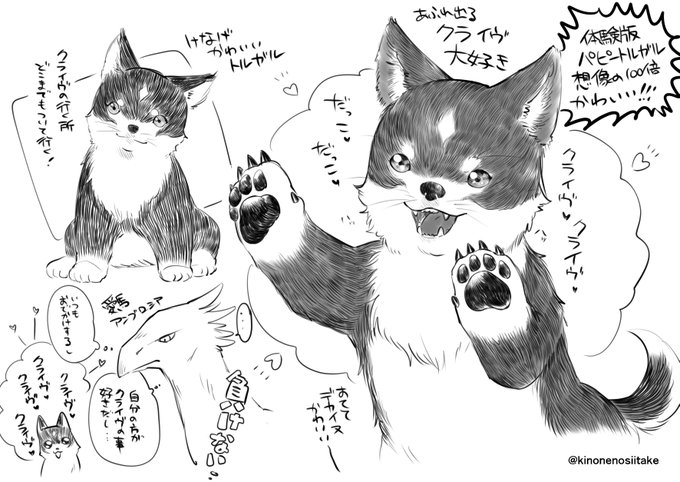 体験版
パピートルガル
想像の100倍
かわいい!!!
あふれ出る
クライヴ
大好き
だっこ♥
だっこ♥
クライヴ♥
クライヴ♥
けなげ
かわいい
トルガル
クライヴの行く所
どこまでもついて行く!
愛鳥
アンブロシア
…
負けない
自分の方が
クライヴの事
好きだし…
いつも
おでかけする♥
クライヴ♥
クライヴ♥
クライヴ♥
クライヴ♥
デカイヌ
かわいい
@kinonenosiitake